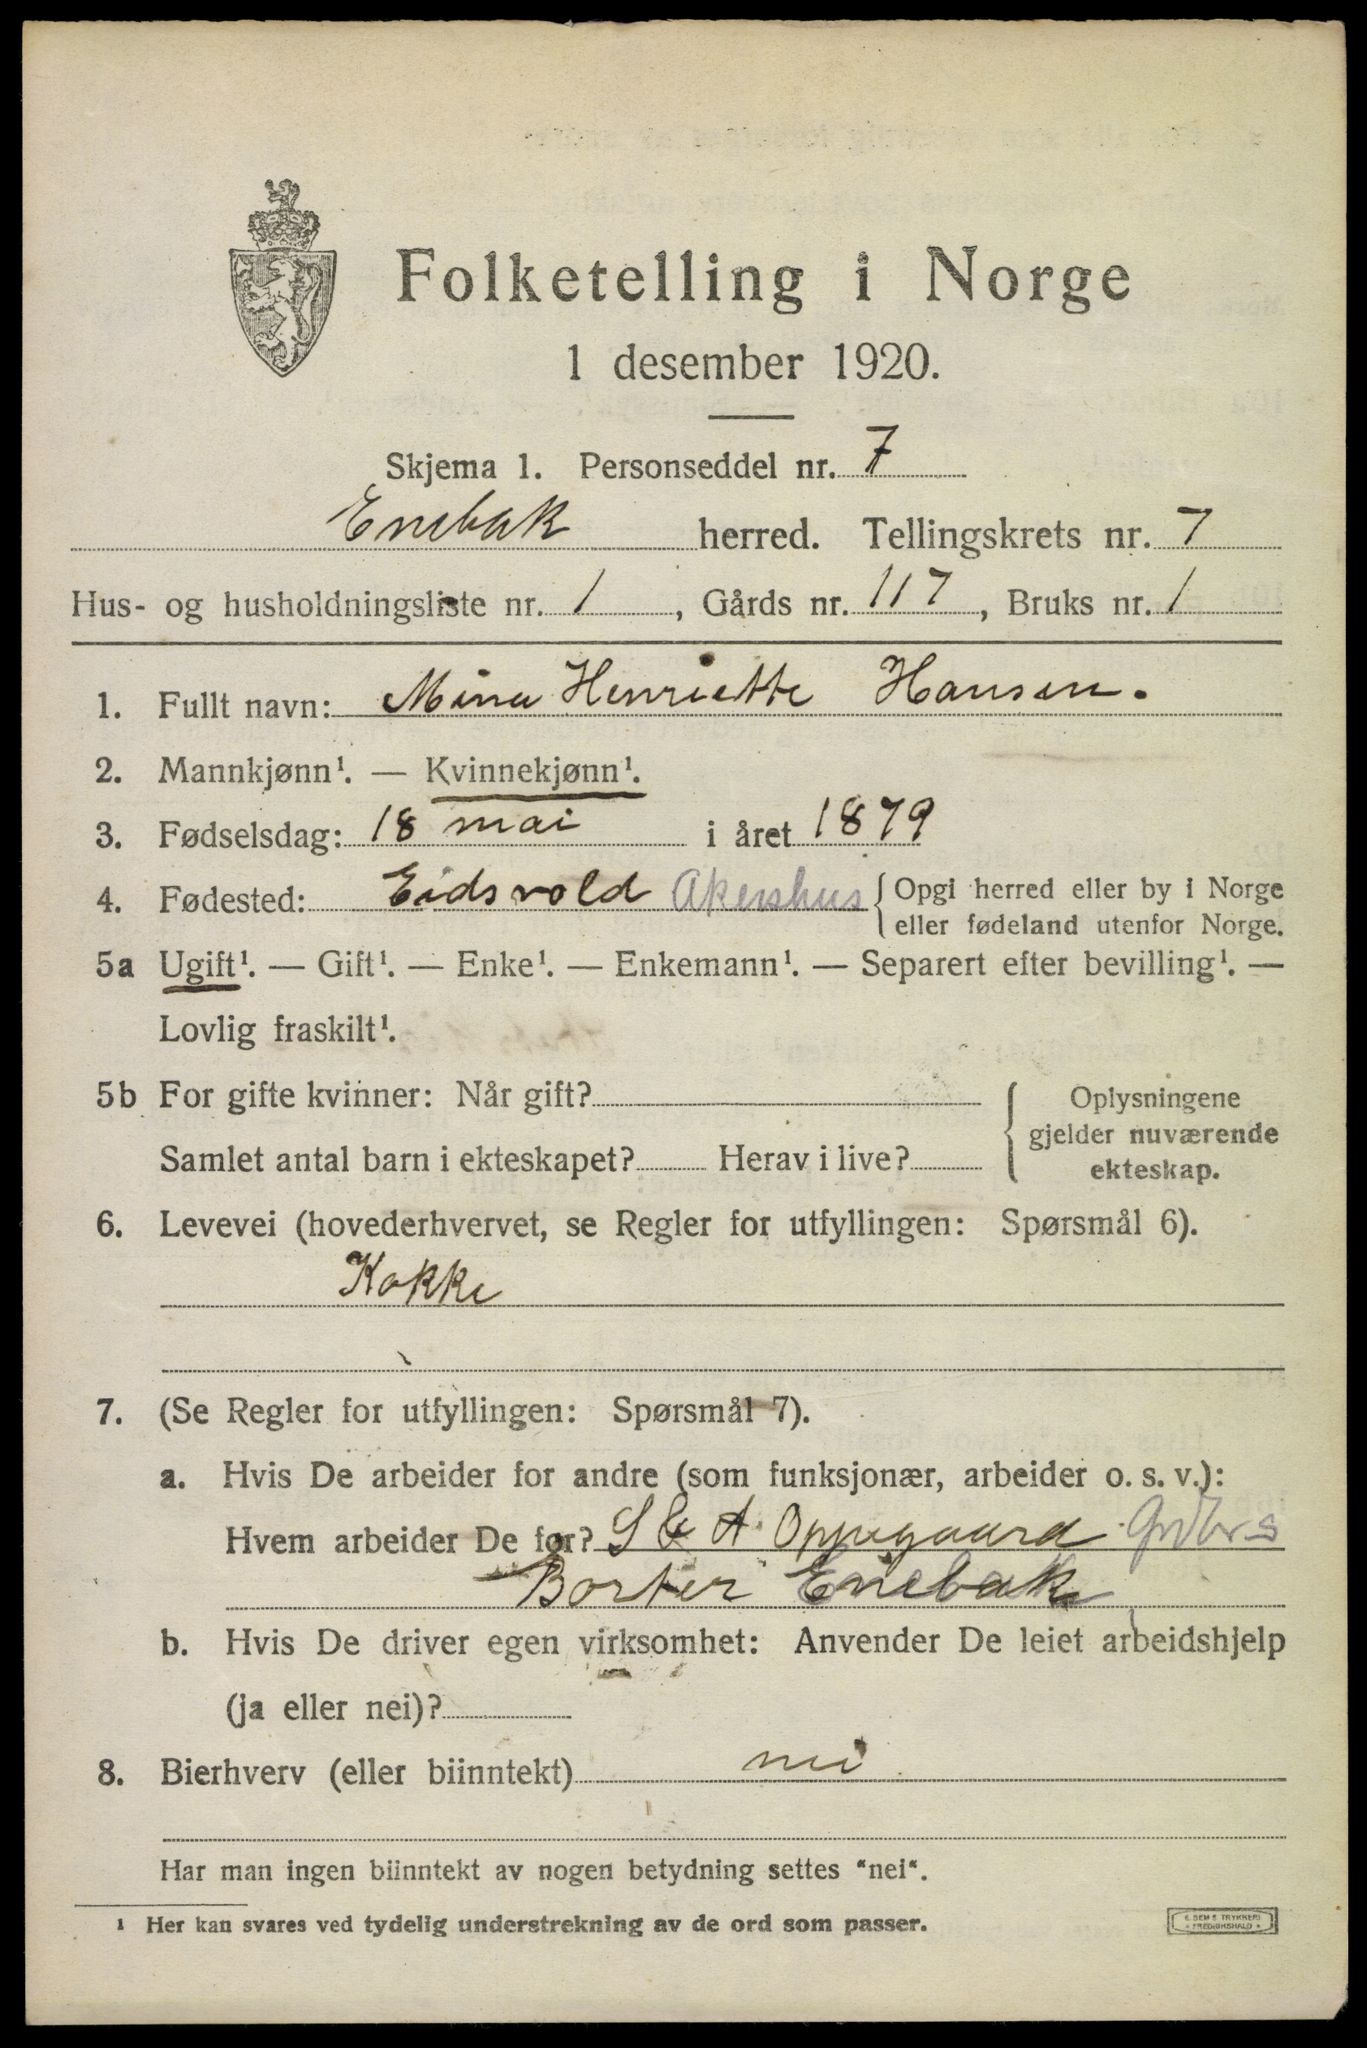 Folketelling i Norge
1 desember 1920.
Skjema 1. Personseddel nr. 7
Enebak herred. Tellingskrets nr. 7
Hus- og husholdningsliste nr. 1, Gårds nr. 117, Bruks nr. 1
1. Fullt navn: Mina Henriette Hansen.
2. Mannkjønn¹. — Kvinnekjønn¹.
3. Fødselsdag: 18 mai i året 1879
4. Fødested: Eidsvold Akershus { Opgi herred eller by i Norge
eller fødeland utenfor Norge.
5a Ugift¹. — Gift¹. — Enke¹. — Enkemann¹. — Separert efter bevilling¹. —
Lovlig fraskilt¹.
5b For gifte kvinner: Når gift?
Samlet antal barn i ekteskapet? Herav i live?
{ Oplysningene
gjelder nuværende
ekteskap.
6. Levevei (hovederhvervet, se Regler for utfyllingen: Spørsmål 6).
Kokke
7. (Se Regler for utfyllingen: Spørsmål 7).
a. Hvis De arbeider for andre (som funksjonær, arbeider o. s. v.):
Hvem arbeider De for? S & A Oppegaard
Borter Enebak
b. Hvis De driver egen virksomhet: Anvender De leiet arbeidshjelp
(ja eller nei)?
8. Bierhverv (eller biinntekt) nei
Har man ingen biinntekt av nogen betydning settes "nei".
¹ Her kan svares ved tydelig understrekning av de ord som passer.
E. SEM'S TRYKKERI
FREDRIKSHALD